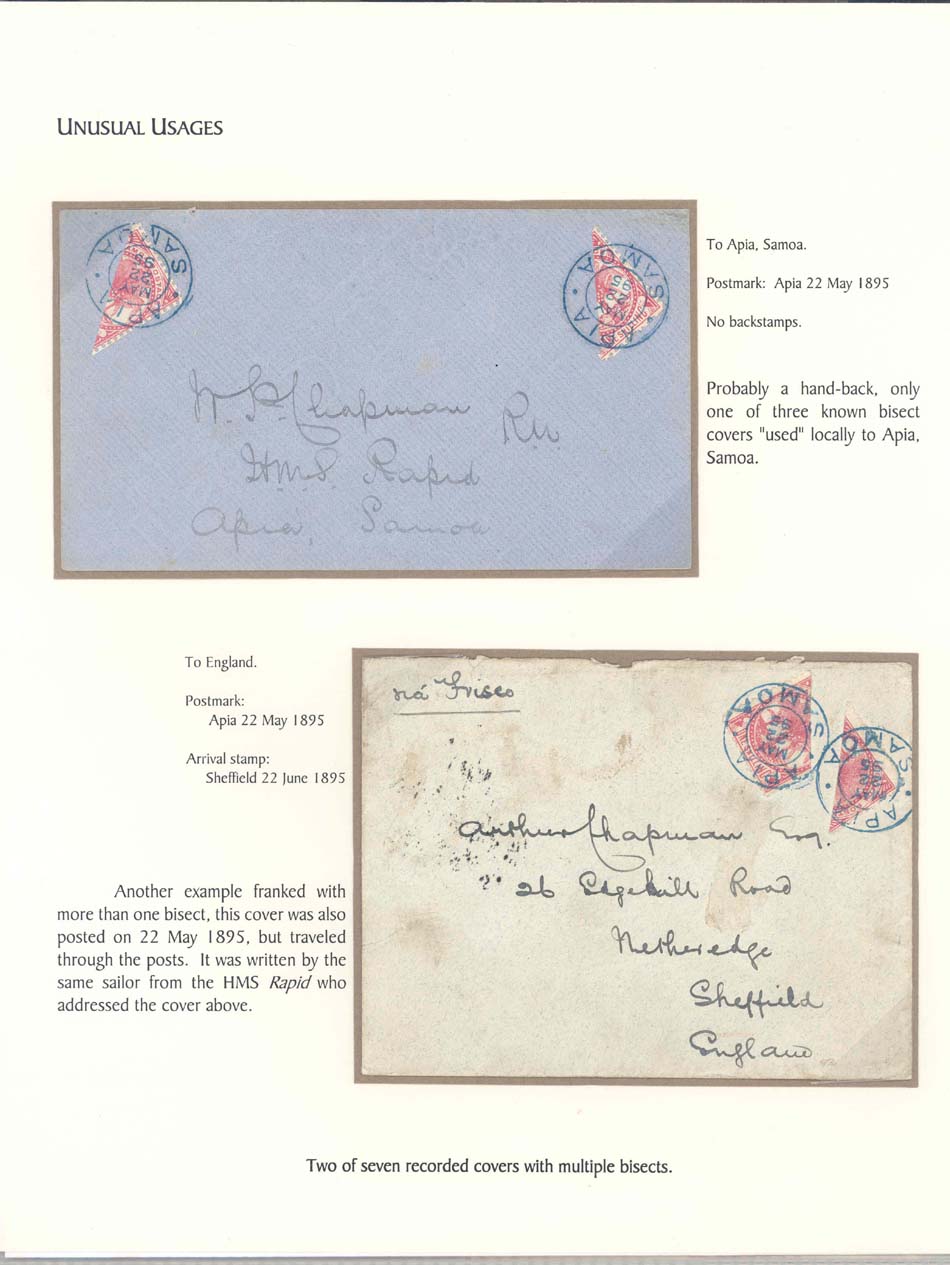 UNUSUAL USAGES
SAMOA
APIA
MAY
22
95
POSTAGE
SAMOA
APIA
MAY
22
95
SHILLING
W. P. Chapman
R.N.
H.M.S. Rapid
Apia, Samoa
To Apia, Samoa.
Postmark: Apia 22 May 1895
No backstamps.
Probably a hand-back, only
one of three known bisect
covers "used" locally to Apia,
Samoa.
To England.
Postmark:
Apia 22 May 1895
Arrival stamp:
Sheffield 22 June 1895
Another example franked with
more than one bisect, this cover was also
posted on 22 May 1895, but traveled
through the posts. It was written by the
same sailor from the HMS Rapid who
addressed the cover above.
viá Frisco
SAMOA
APIA
MAY
22
95
SAMOA
APIA
MAY
22
95
Arthur Chapman Esq.
26 Edgehill Road
Netheredge
Sheffield
England
Two of seven recorded covers with multiple bisects.